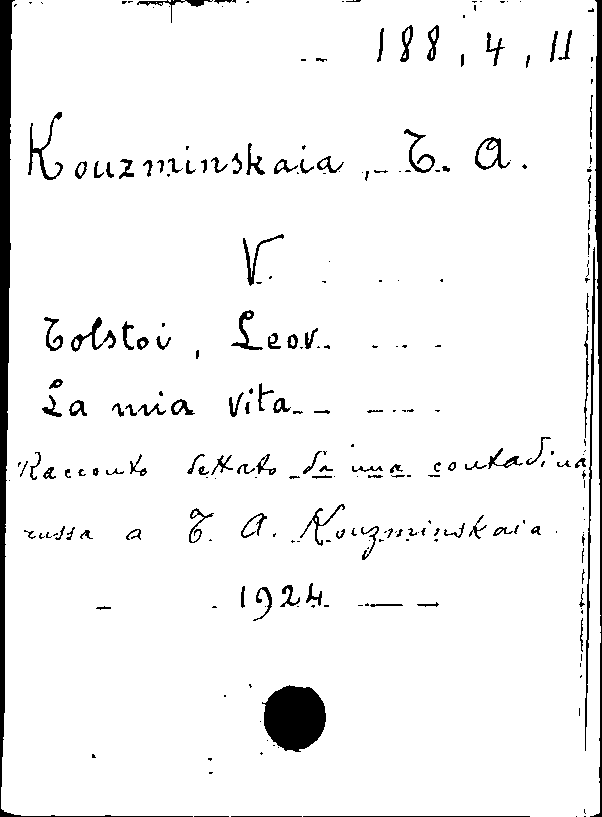 188, 4, 11
Kouzminskaia, T. A.
V.
Tolstoi, Leov
La mia vita
Racconto dettato da una contadina
russa a T. A. Kouzminskaia
1924